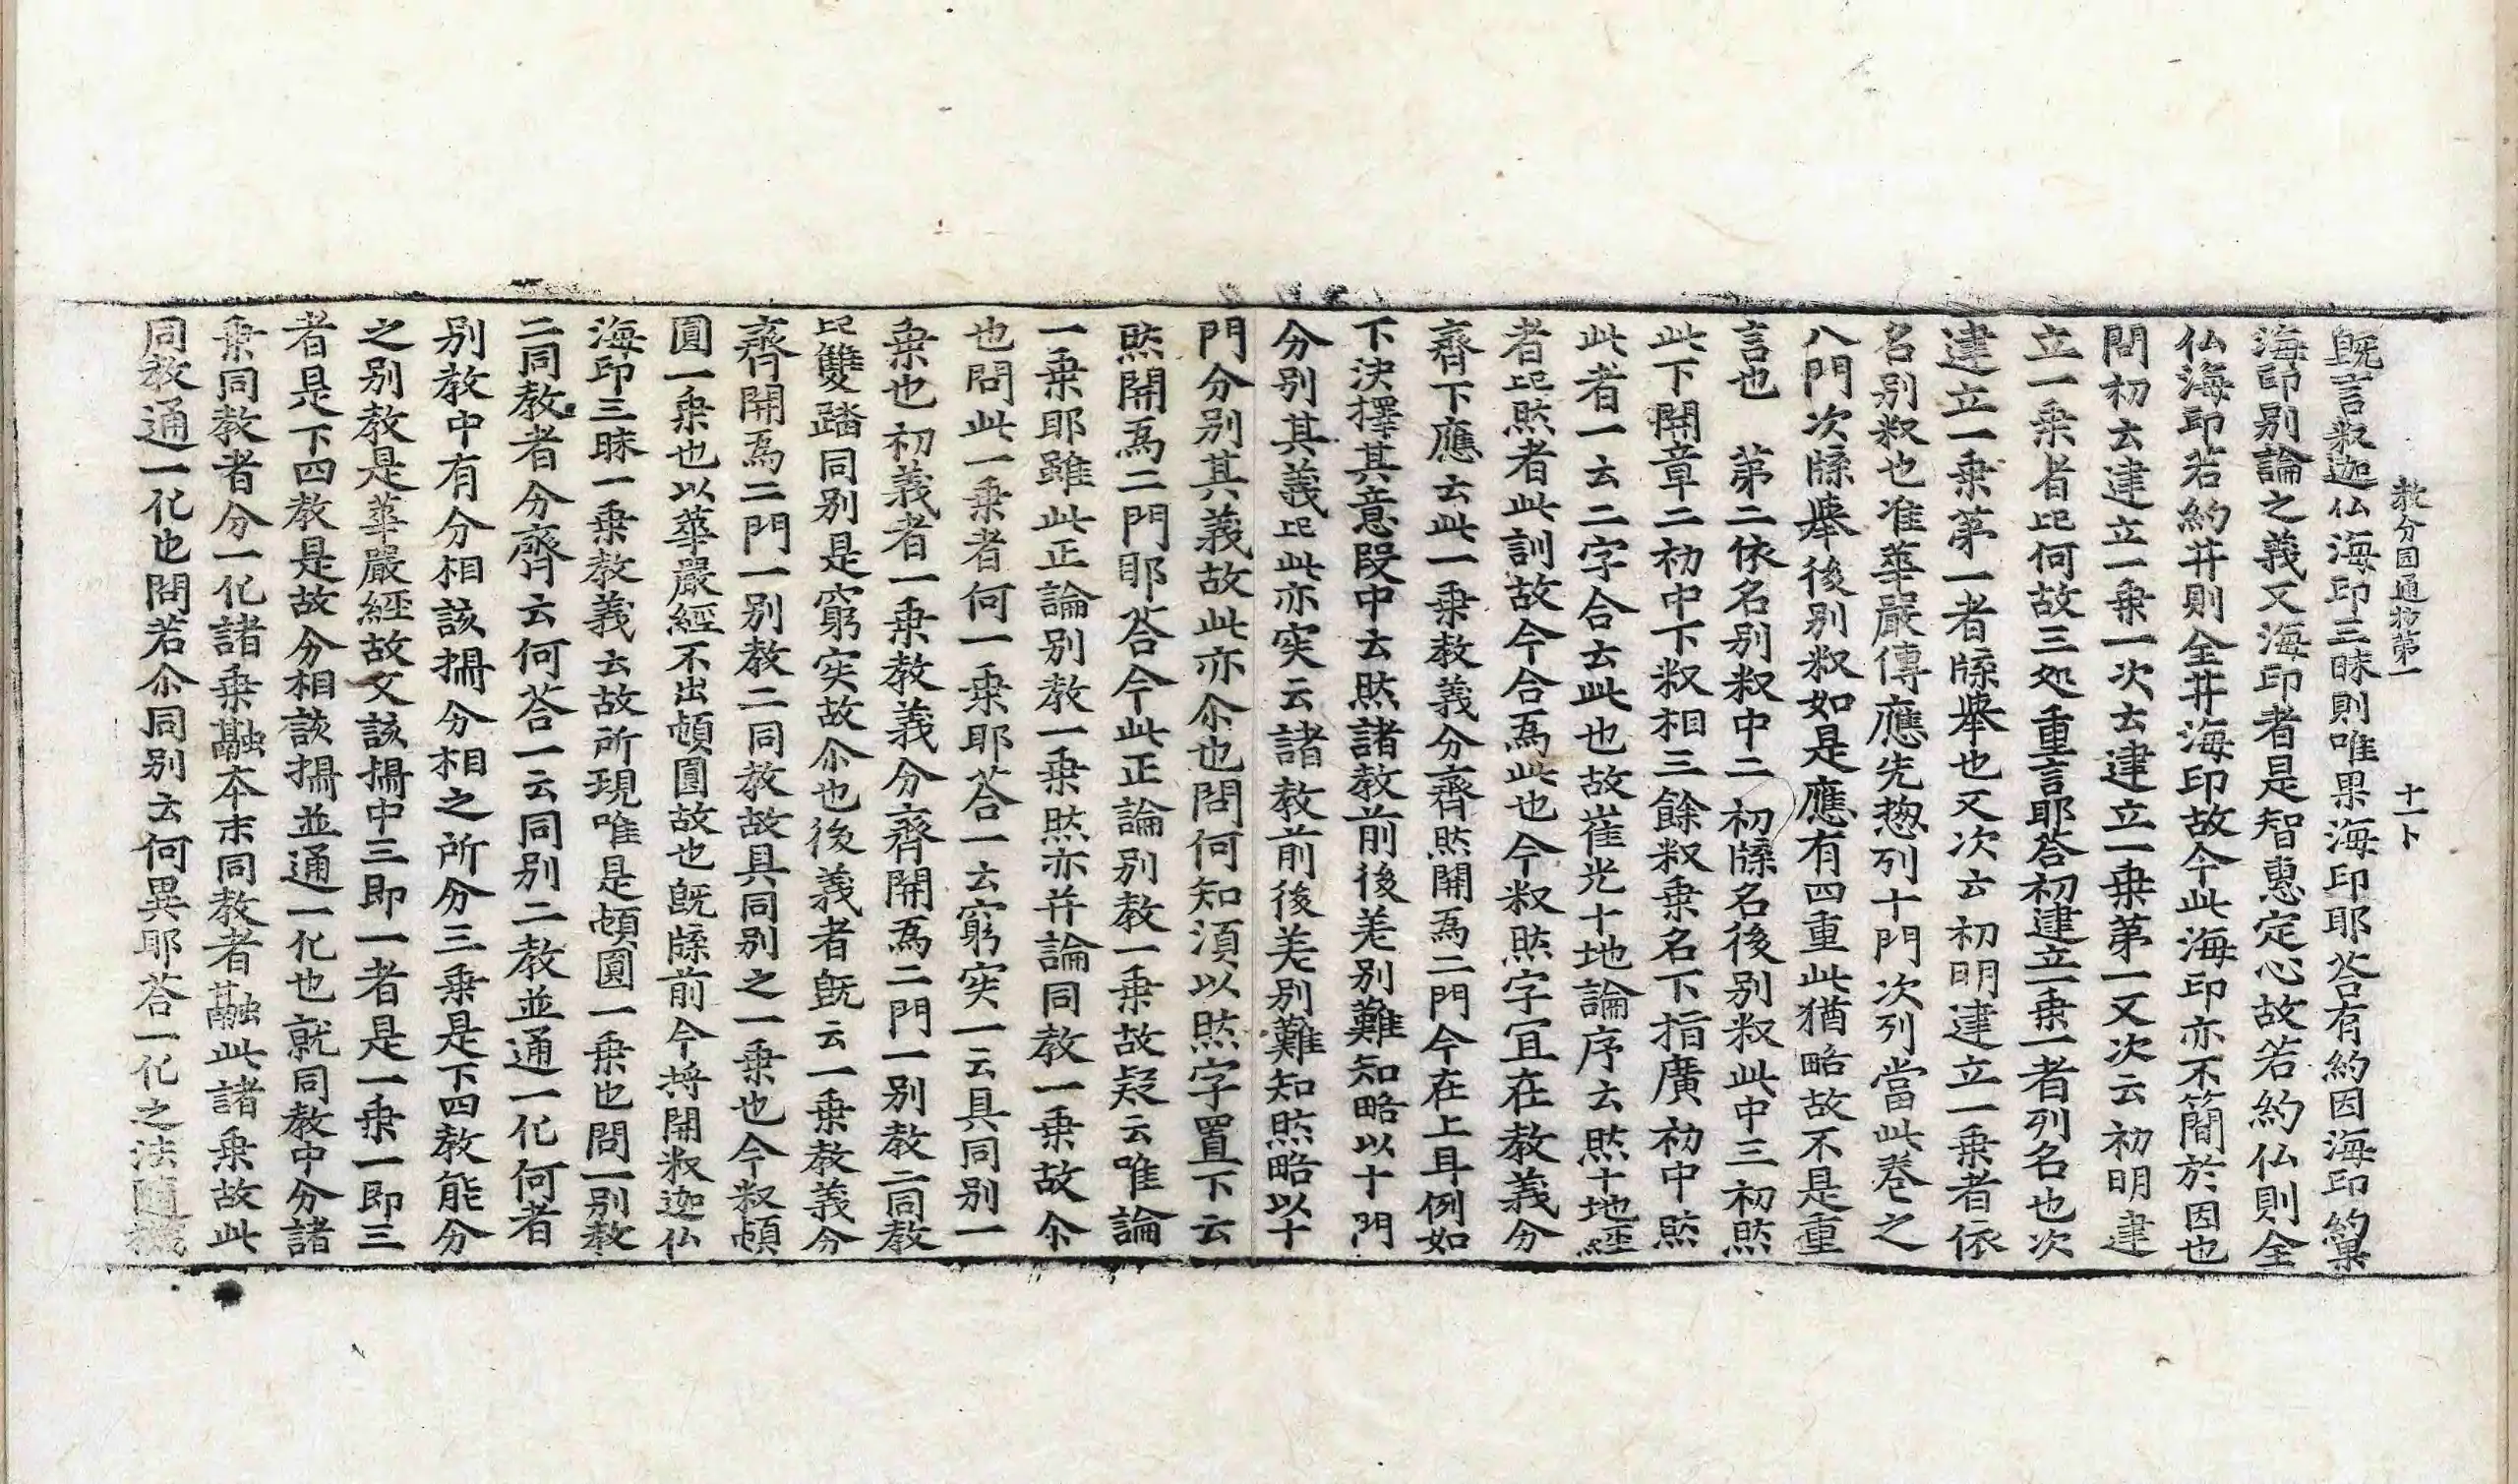 教分圓通抄第一　十一卜
旣言釈迦仏海印三昧則唯果海印耶荅有約因海印約果
海印別論之義又海印者是智惠定心故若約仏則全
仏海印若約井則全井海印故今此海印亦不簡於因也
問初云建立一乗一次云建立一乗第一又次云初明建
立一乗者此何故三処重言耶荅初建立一乗一者列名也次
建立一乗第一者牒擧也又次云初明建立一乗者依
名別釈也准華嚴傳應先惣列十門次列當此巻之
八門次牒擧後別釈如是應有四重此猶略故不是重
言也　第二依名別釈中二初牒名後別釈此中三初㷊
此下開章二初中下釈相三餘釈乗名下指廣初中㷊
此者一云二字合云此也故崔光十地論序云㷊十地経
者此㷊者此訓故今合爲此也今釈㷊字冝在教義分
齊下應云此一乗教義分齊㷊開爲二門今在上耳例如
下決擇其意段中云㷊諸教前後差別難知略以十門
分別其義此此亦宲云諸教前後差別難知㷊略以十
門分別其義故此亦尒也問何知湏以㷊字置下云
㷊開爲二門耶荅今此正論別教一乗故疑云唯論
一乗耶雖此正論別教一乗㷊亦并論同教一乗故尒
也問此一乗者何一乗耶荅一云窮宲一云具同別一
乗也初義者一乗教義分齊開爲二門一別教二同教
此雙踏同別是窮宲故尒也後義者旣云一乗教義分
齊開爲二門一別教二同教故具同別之一乗也今釈頓
圓一乗也以華嚴經不出頓圓故也旣牒前今将開釈迦仏
海印三昧一乗教義云故所現唯是頓圓一乗也問一別教
二同教者分齊云何荅一云同別二教並通一化何者
別教中有分相該攝分相之所分三乗是下四教能分
之別教是華嚴經故又該攝中三即一者是一乗一即三
者是下四教是故分相該攝並通一化也就同教中分諸
乗同教者分一化諸乗融夲末同教者融此諸乗故此
同教通一化也問若尒同別云何異耶荅一化之法隨機